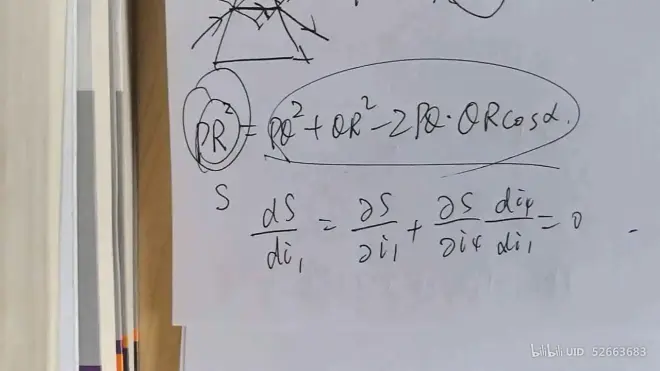 PR² = PQ² + QR² - 2PQ·QR cosα.
S
dS/di₁ = ∂S/∂i₁ + ∂S/∂i₄ di₄/di₁ = 0
bilibili UID 52663683